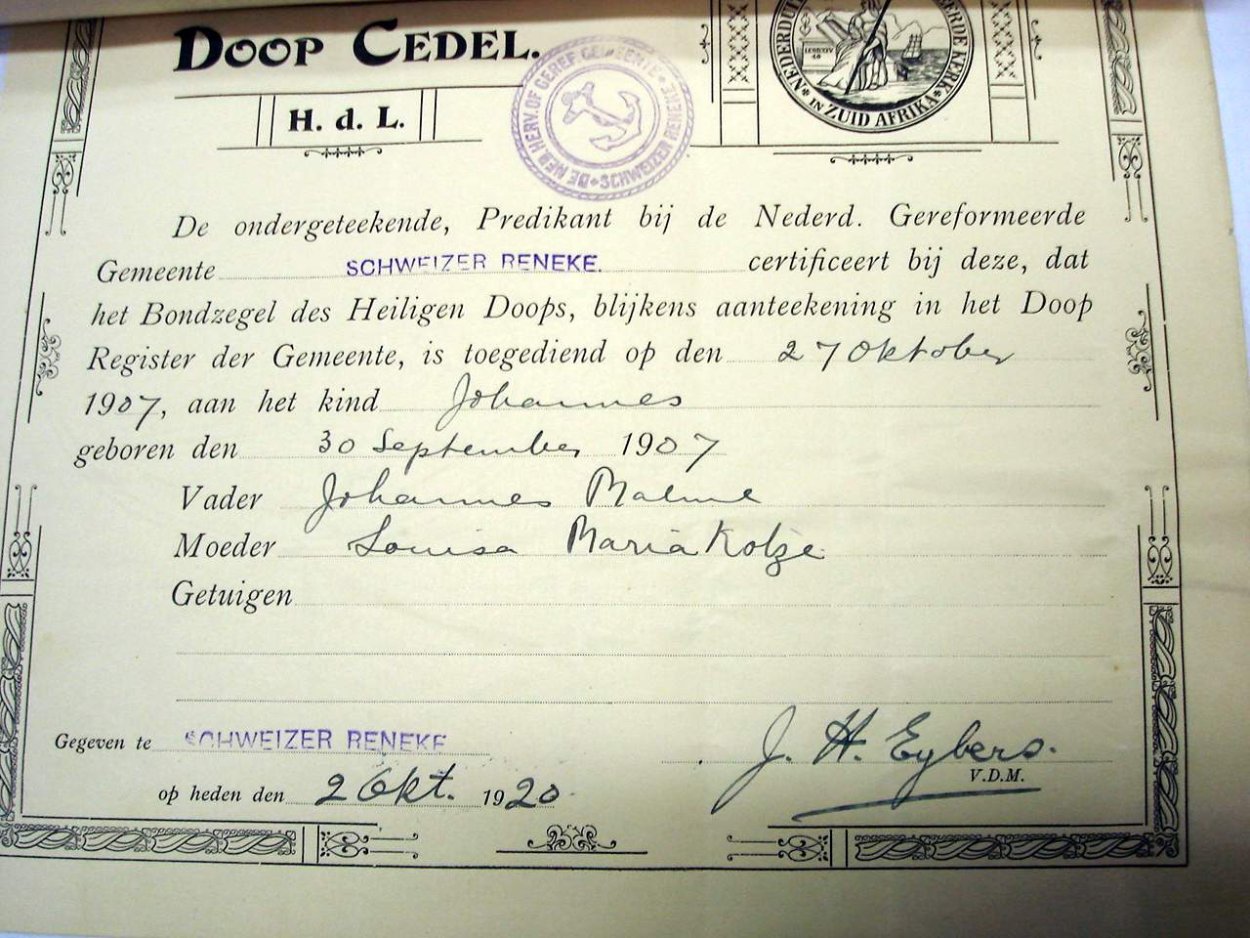 DOOP CEDEL.
H. d. L.
DE NED HERV. OF GEREF GEMEENTE SCHWEIZER RENEKE
NEDERDUI ERDE KERK IN ZUID AFRIKA
De ondergeteekende, Predikant bij de Nederd. Gereformeerde
Gemeente SCHWEIZER RENEKE. certificeert bij deze, dat
het Bondzegel des Heiligen Doops, blijkens aanteekening in het Doop
Register der Gemeente, is toegediend op den 27 Oktober
1907, aan het kind Johannes
geboren den 30 September 1907
Vader Johannes
Moeder Louisa Maria Kotze
Getuigen
Gegeven te SCHWEIZER RENEKE
J. H. Eybers.
V.D.M.
op heden den 2 Okt. 1920